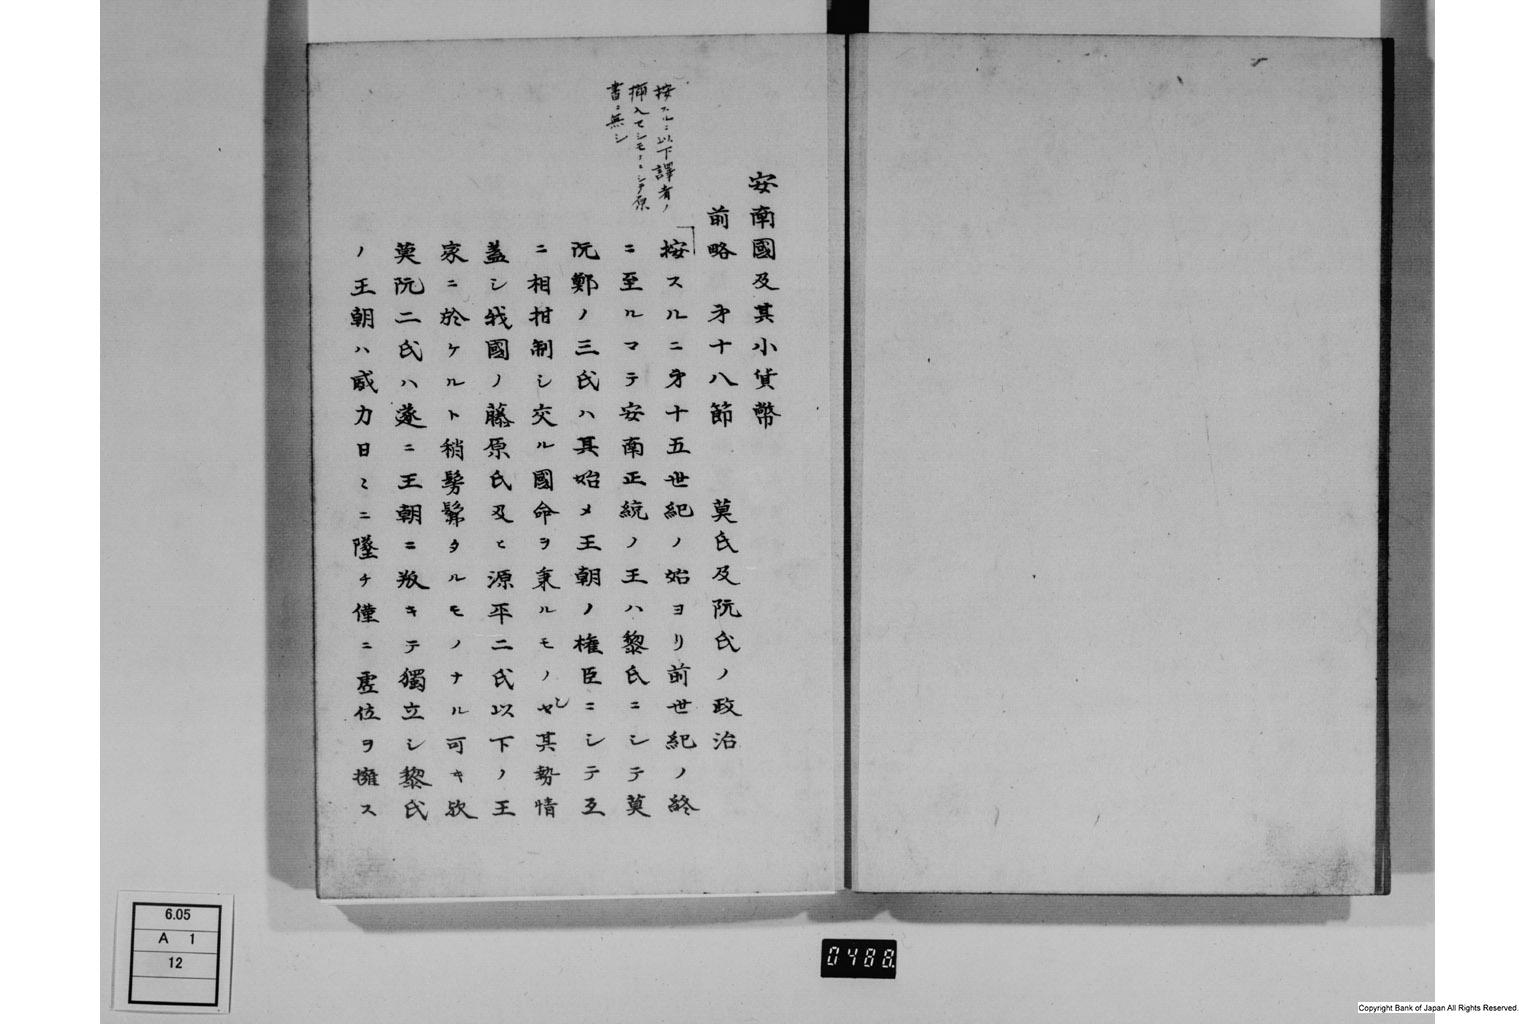 安南國及其小貨幣
前略　㐧十八節　莫氏及阮氏ノ政治
按スルニ以下譯者ノ
挿入セシモノニシテ原
書ニ無シ
按スルニ㐧十五世紀ノ始ヨリ前世紀ノ終
ニ至ルマテ安南正統ノ王ハ黎氏ニシテ莫
阮鄭ノ三氏ハ其始メ王朝ノ権臣ニシテ互
ニ相拑制シ交ル國命ヲ秉ルモノヽヤシ其勢情
蓋シ我國ノ藤原氏及ヒ源平二氏以下ノ王
家ニ於ケルト稍髣髴タルモノナル可キ欤
莫阮二氏ハ遂ニ王朝ニ叛キテ獨立シ黎氏
ノ王朝ハ威力日々ニ墜チ僅ニ虚位ヲ擁ス
6.05
A 1
12
0488
Copyright Bank of Japan All Rights Reserved.